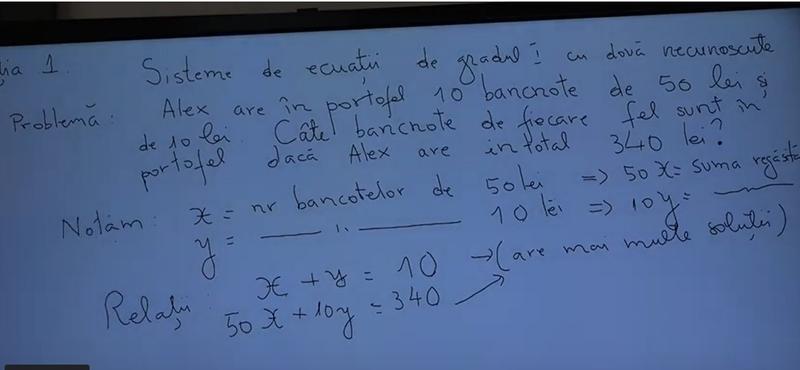 ția 1. Sisteme de ecuații de gradul I cu două necunoscute
Problemă: Alex are în portofel 10 bancnote de 50 lei și
de 10 lei. Câte bancnote de fiecare fel sunt în
portofel dacă Alex are in total 340 lei?
Notăm: x = nr bancotelor de 50 lei => 50x = suma
y = —— 〃 —— 10 lei => 10y = ——
Relații: x + y = 10 → (are mai multe soluții)
50x + 10y = 340